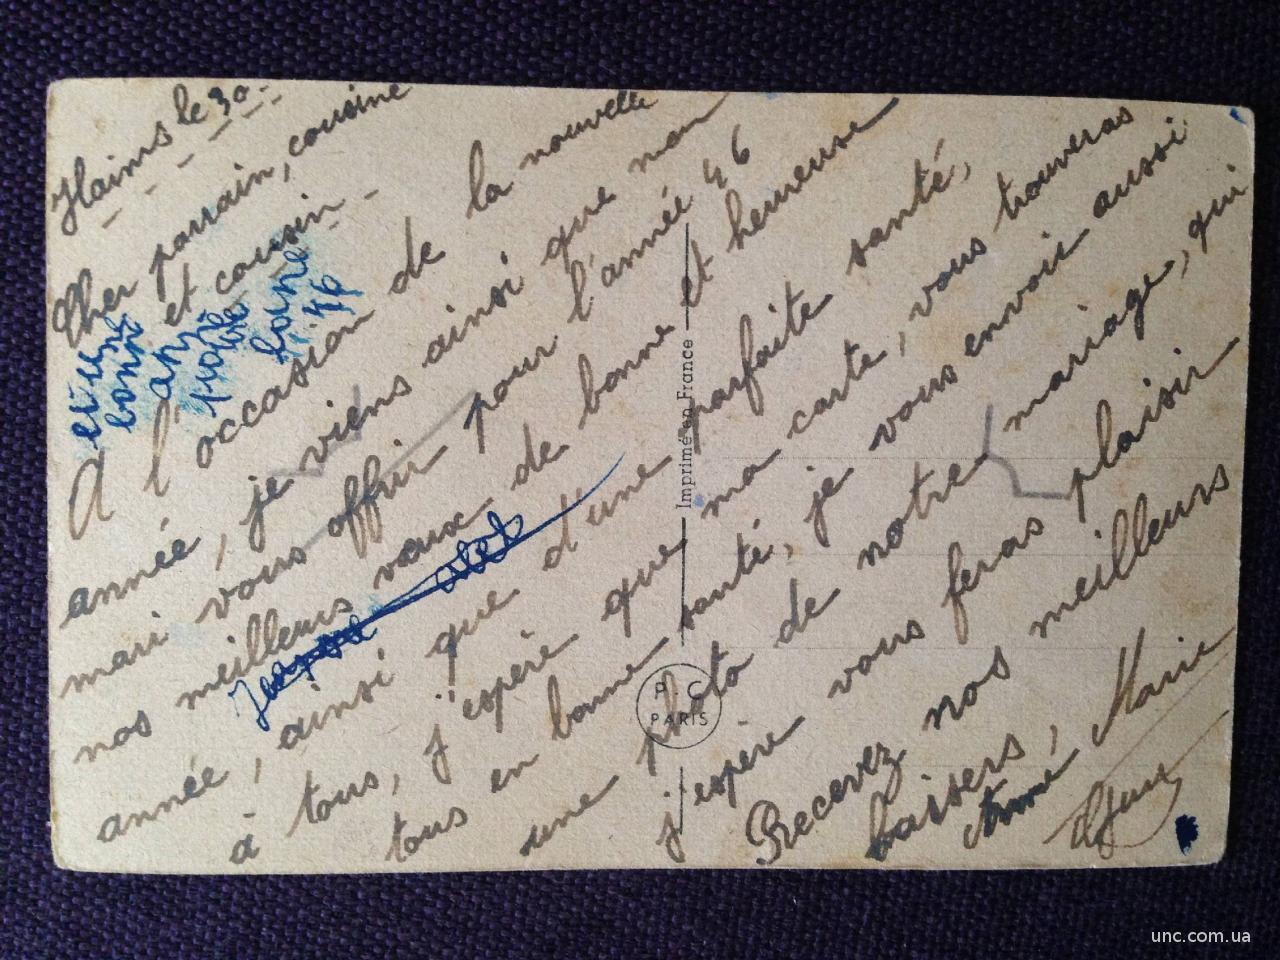 Hains le 30
Cher parrain, cousine
et cousin
A l'occasion de la nouvelle
année, je viens ainsi que mon
mari vous offrir pour l'année 46
nos meilleurs vœux de bonne et heureuse
année, ainsi que d'une parfaite santé,
à tous, j'espère que ma carte, vous trouveras
tous en bonne santé, je vous envoir aussi
une photo de notre mariage, qui
j'espère vous feras plaisir
Recevez nos meilleurs
baisers, Anne Marie
et une
bonne
Imprimé en France
P.C
PARIS
unc.com.ua